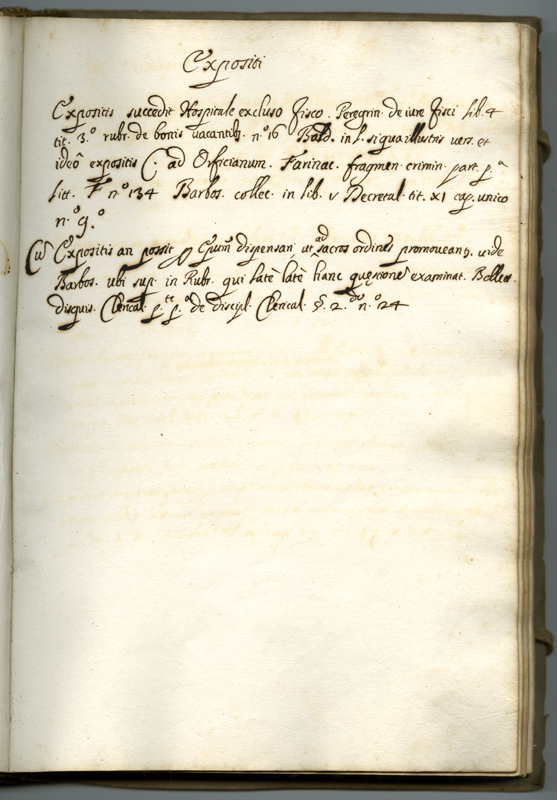 Expositi
Expositis succedit Hospitale excluso fisco. Peregrin. de iure fisci lib. 4
tit. 3.º rubr. de bonis vacantib. nº 16 Bald. in l. si qua illustris vers. et
ideò expositis C. ad Orficianum. Farinac. fragmen. crimin. part. pª
Litt. F nº 134 Barbos. collec. in lib. v Decretal. tit. XI cap. unico
n.º 9.º
Cũ Expositis an possit Epũm dispensari, ut ad sacros ordines promoveant. vide
Barbos. ubi sup. in Rubr. qui latè latè hanc quęstionẽ examinat. Bellet.
disquis. Clerical. p.te p.ª de discipl. Clerical. §. 2.do n.º 24